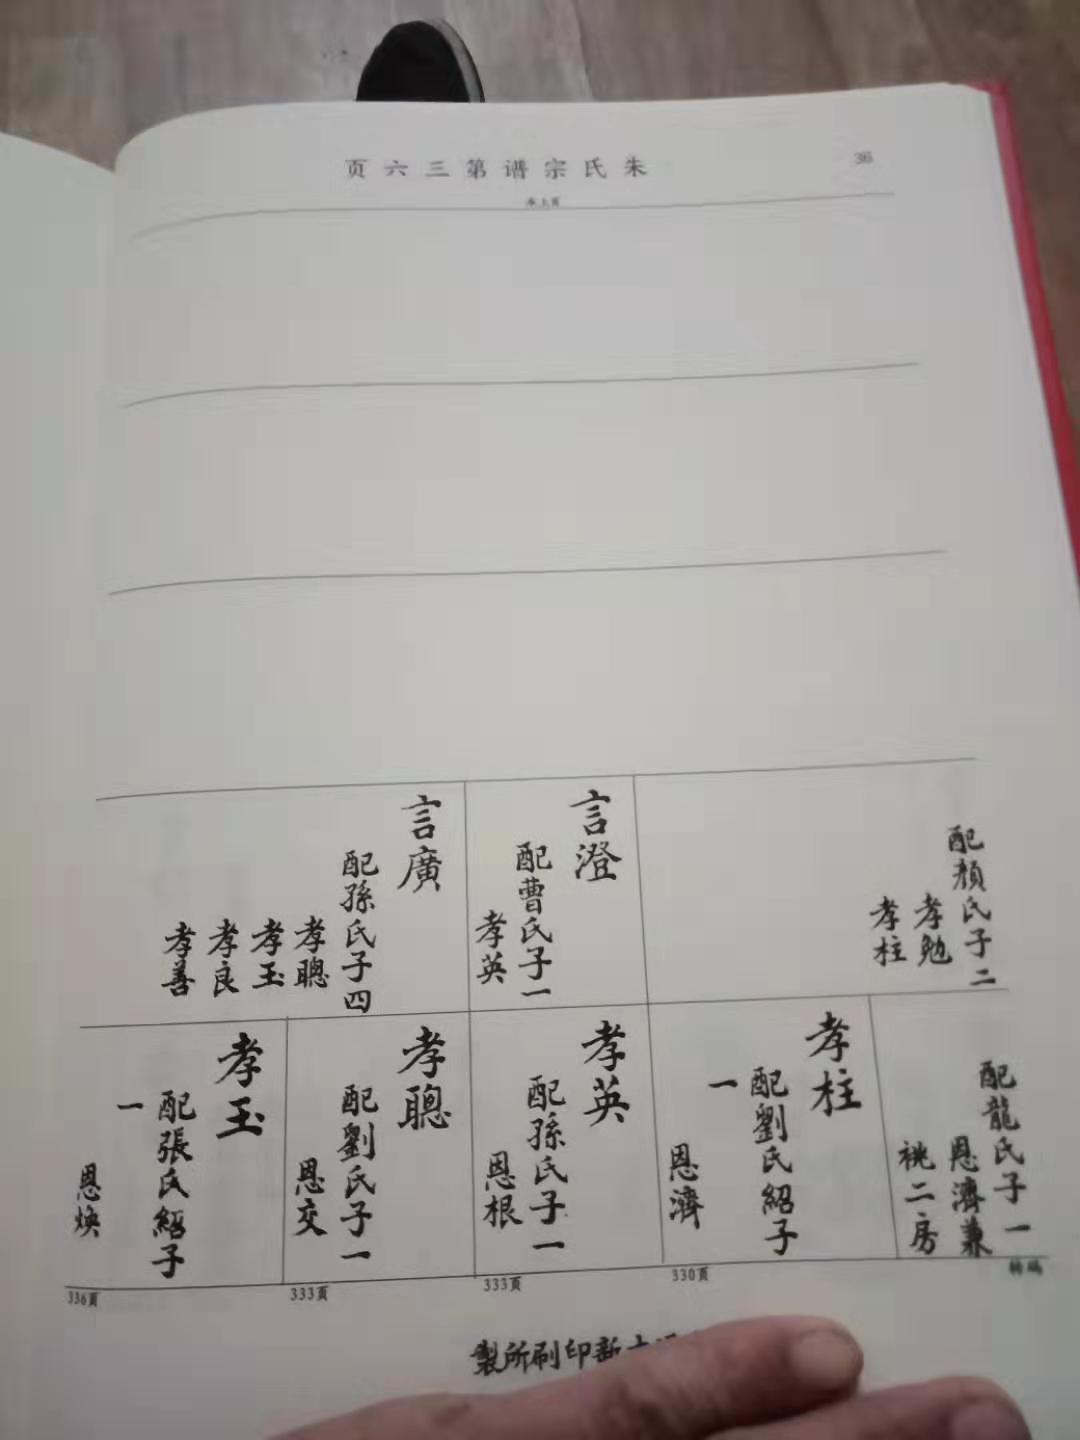 朱氏宗谱第三六页
36
承上頁
配顏氏子二
孝勉
孝柱
言澄
配曹氏子一
孝英
言廣
配孫氏子四
孝聰
孝玉
孝良
孝善
配龍氏子一
恩濟兼
祧二房
孝柱
配劉氏紹子
一
恩濟
孝英
配孫氏子一
恩根
孝聰
配劉氏子一
恩交
孝玉
配張氏紹子
一
恩焕
330页
333页
333页
336页
新印刷所製